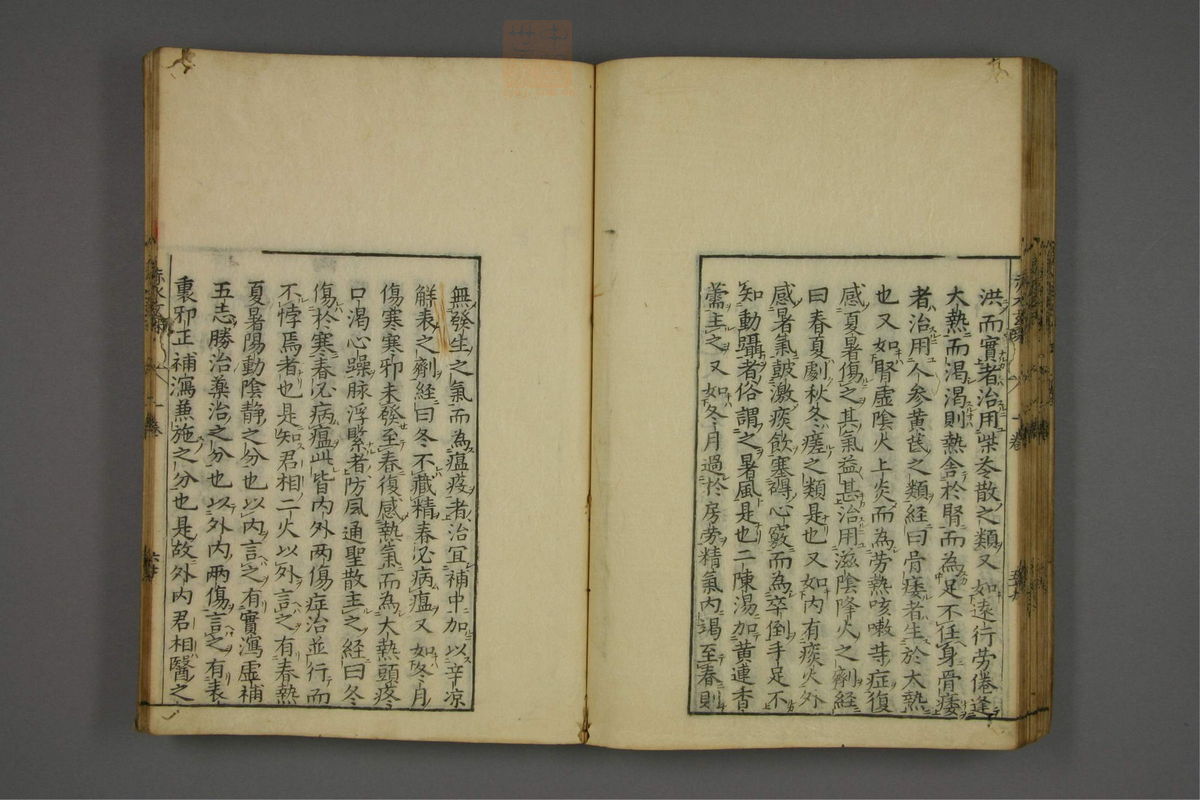 洪而實者治用柴苓散之類又如遠行勞倦逢
大熱而渴渴則熱舍於腎而為足不任身骨痿
者治用人參黃芪之類經曰骨痿者生於大熱
也又如腎虛陰火上炎而為勞熱咳嗽等症復
感夏暑傷之其氣益甚治用滋陰降火之劑經
曰春夏劇秋冬瘥之類是也又如內有痰火外
感暑氣皷激痰飲塞碍心竅而為卒倒手足不
知動躡者俗謂之暑風是也二陳湯加黃連香
薷主之又如冬月過於房勞精氣內竭至春則
無發生之氣而為瘟疫者治宜補中加以辛凉
觧表之劑經曰冬不藏精春必病瘟又如冬月
傷寒寒邪未發至春復感熱氣而為大熱頭疼
口渴心躁脉浮緊者防風通聖散主之經曰冬
傷於寒春必病瘟此皆內外兩傷症治並行而
不悖焉者也是知君相二火以外言之有春熱
夏暑陽動陰靜之分也以內言之有實瀉虛補
五志勝治藥治之分也以外內兩傷言之有表
裏邪正補瀉兼施之分也是故外內君相醫之